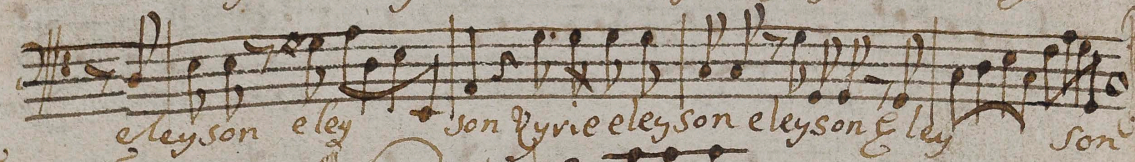 eleyson eley son Kyrie eleyson eleyson Eley son